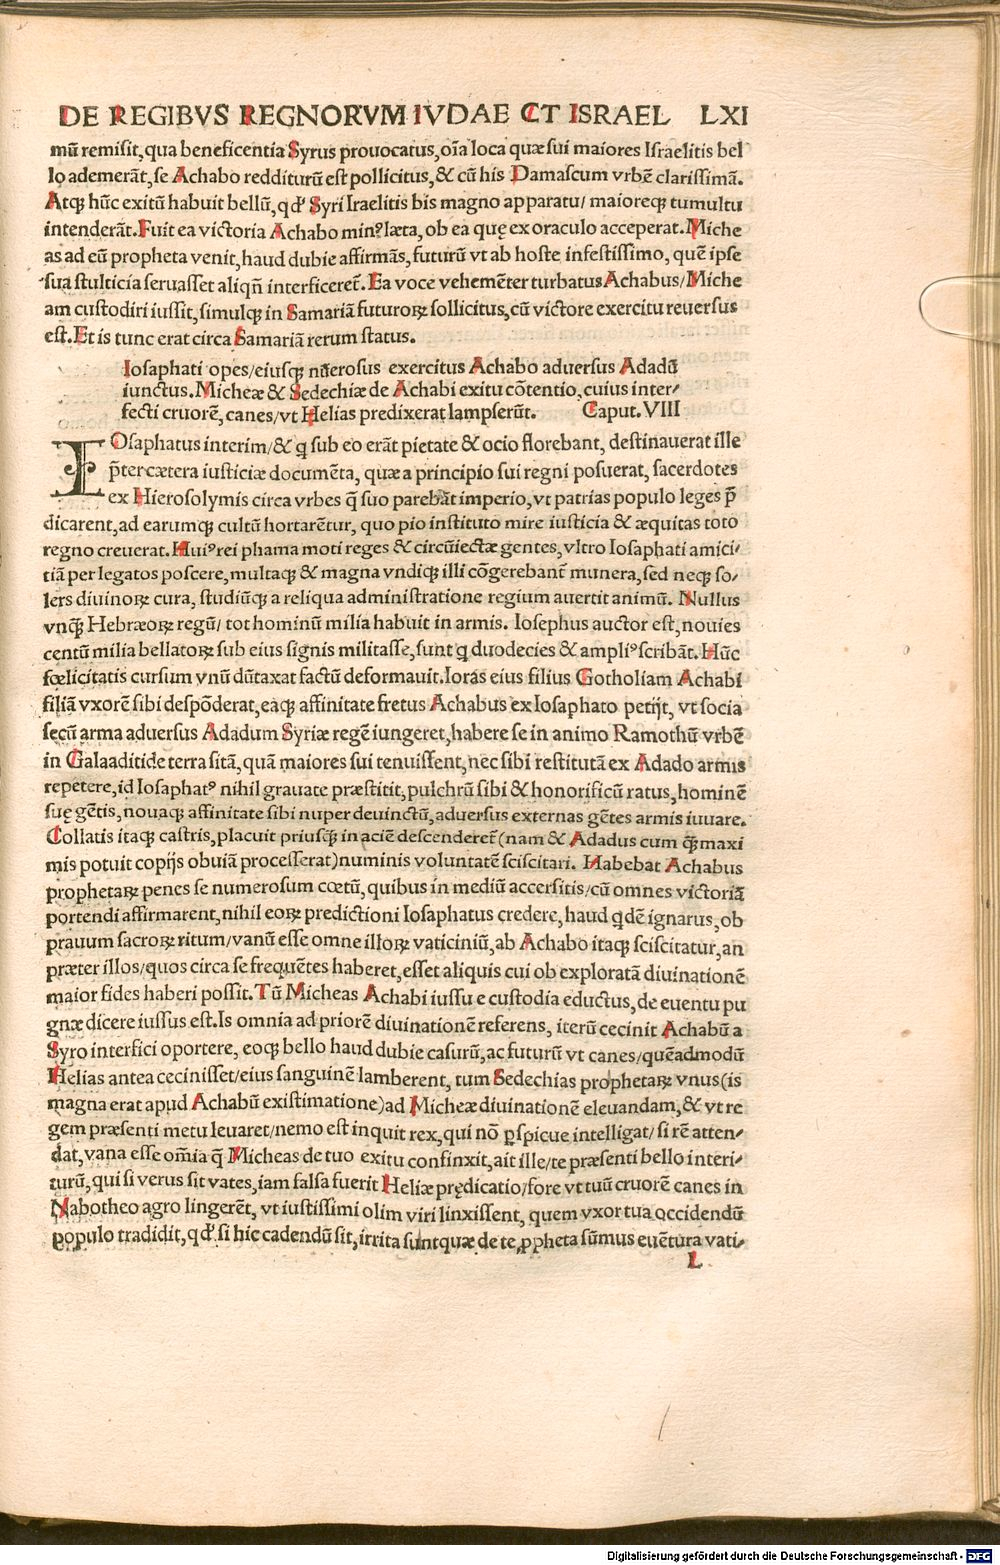 DE REGIBVS REGNORVM IVDAE ET ISRAEL LXI
mū remisit, qua beneficentia Syrus prouocatus, oīa loca quæ sui maiores Israelitis bel
lo ademerāt, se Achabo redditurū est pollicitus, & cū his Damascum vrbē clarissimā.
Atqꝫ hūc exitū habuit bellū, qđ Syri Iraelitis bis magno apparatu/ maioreqꝫ tumultu
intenderāt. Fuit ea victoria Achabo minꝰ læta, ob ea quę ex oraculo acceperat. Miche
as ad eū propheta venit, haud dubie affirmās, futurū vt ab hoste infestissimo, quē ipse
sua stulticia seruasset aliqñ interficeret̄. Ea voce vehemēter turbatus Achabus/ Miche
am custodiri iussit, simulqꝫ in Samariā futuroꝝ sollicitus, cū victore exercitu reuersus
est. Et is tunc erat circa Samariā rerum status.
Iosaphati opes/ eiusqꝫ nūerosus exercitus Achabo aduersus Adadū
iunctus. Micheæ & Sedechiæ de Achabi exitu cōtentio, cuius inter⸗
fecti cruorē, canes/ vt Helias predixerat lampserūt. Caput. VIII
IOsaphatus interim/ & q sub eo erāt pietate & ocio florebant, destinauerat ille
p̄ter cætera iusticiæ documēta, quæ a principio sui regni posuerat, sacerdotes
ex Hierosolymis circa vrbes q̄ suo parebāt imperio, vt patrias populo leges p̄
dicarent, ad earumqꝫ cultū hortarētur, quo pio instituto mire iusticia & æquitas toto
regno creuerat. Huiꝰ rei phama moti reges & circūiectæ gentes, vltro Iosaphati amici⸗
tiā per legatos poscere, multaqꝫ & magna vndiqꝫ illi cōgerebant̄ munera, sed neqꝫ so⸗
lers diuinoꝝ cura, studiūqꝫ a reliqua administratione regium auertit animū. Nullus
vnq̄ꝫ Hebræoꝝ regū/ tot hominū milia habuit in armis. Iosephus auctor est, nouies
centū milia bellatoꝝ sub eius signis militasse, sunt q duodecies & ampliꝰ scribāt. Hūc
fœlicitatis cursum vnū dūtaxat factū deformauit. Ioras eius filius Gotholiam Achabi
filiā vxorē sibi despōderat, eaqꝫ affinitate fretus Achabus ex Iosaphato petijt, vt socia
secū arma aduersus Adadum Syriæ regē iungeret, habere se in animo Ramothū vrbē
in Galaaditide terra sitā, quā maiores sui tenuissent, nec sibi restitutā ex Adado armis
repetere, id Iosaphatꝰ nihil grauate præstitit, pulchrū sibi & honorificū ratus, hominē
suę gētis, nouaqꝫ affinitate sibi nuper deuinctū, aduersus externas gētes armis iuuare.
Collatis itaqꝫ castris, placuit priusq̄ꝫ in aciē descenderet̄ (nam & Adadus cum q̄ꝫ maxi
mis potuit copijs obuiā processerat) numinis voluntatē sciscitari. Habebat Achabus
prophetaꝝ penes se numerosum cœtū, quibus in mediū accersitis/ cū omnes victoriā
portendi affirmarent, nihil eoꝝ predictioni Iosaphatus credere, haud qdē ignarus, ob
prauum sacroꝝ ritum/ vanū esse omne illoꝝ vaticiniū, ab Achabo itaqꝫ sciscitatur, an
præter illos/ quos circa se frequētes haberet, esset aliquis cui ob exploratā diuinationē
maior fides haberi possit. Tū Micheas Achabi iussu e custodia eductus, de euentu pu
gnæ dicere iussus est. Is omnia ad priorē diuinationē referens, iterū cecinit Achabū a
Syro interfici oportere, eoqꝫ bello haud dubie casurū, ac futurū vt canes/ quēadmodū
Helias antea cecinisset/ eius sanguinē lamberent, tum Sedechias prophetaꝝ vnus (is
magna erat apud Achabū existimatione) ad Micheæ diuinationē eleuandam, & vt re
gem præsenti metu leuaret/ nemo est inquit rex, qui nō ꝑspicue intelligat/ si rē atten⸗
dat, vana esse om̄ia q̄ Micheas de tuo exitu confinxit, ait ille/ te præsenti bello interi⸗
turū, qui si verus sit vates, iam falsa fuerit Heliæ prędicatio/ fore vt tuū cruorē canes in
Nabotheo agro lingerēt, vt iustissimi olim viri linxissent, quem vxor tua occidendū
populo tradidit, qđ si hic cadendū sit, irrita sunt quæ de te, ꝓpheta sūmus euētura vati⸗
L
Digitalisierung gefördert durch die Deutsche Forschungsgemeinschaft - DFG